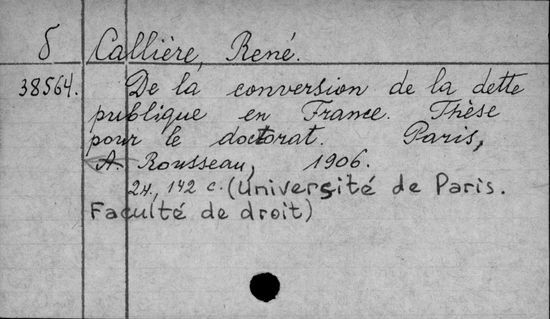 б Callière, René.
38564. De la conversion de la dette
publique en France. Thèse
pour le doctorat. Paris,
A. Rousseau, 1906.
2 н., 142 c. (Université de Paris.
Faculté de droit)